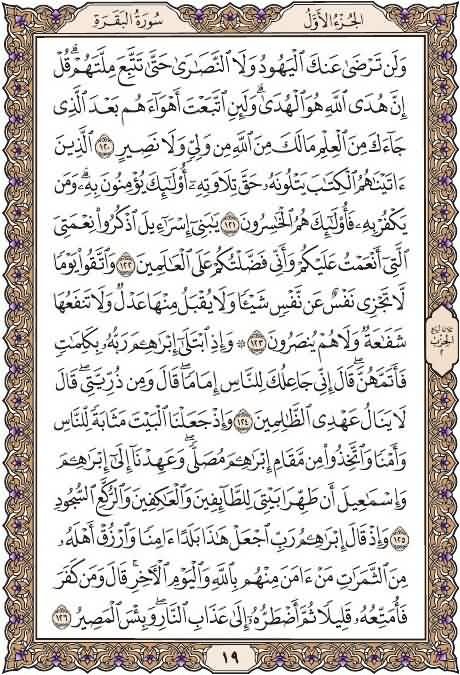 الجزء الأول
سورة البقرة
وَلَن تَرْضَىٰ عَنكَ ٱلْيَهُودُ وَلَا ٱلنَّصَٰرَىٰ حَتَّىٰ تَتَّبِعَ مِلَّتَهُمْ ۗ قُلْ
إِنَّ هُدَى ٱللَّهِ هُوَ ٱلْهُدَىٰ ۗ وَلَئِنِ ٱتَّبَعْتَ أَهْوَآءَهُم بَعْدَ ٱلَّذِى
جَآءَكَ مِنَ ٱلْعِلْمِ مَا لَكَ مِنَ ٱللَّهِ مِن وَلِىٍّ وَلَا نَصِيرٍ ١٢٠ ٱلَّذِينَ
ءَاتَيْنَٰهُمُ ٱلْكِتَٰبَ يَتْلُونَهُۥ حَقَّ تِلَاوَتِهِۦٓ أُو۟لَٰٓئِكَ يُؤْمِنُونَ بِهِۦ ۗ وَمَن
يَكْفُرْ بِهِۦ فَأُو۟لَٰٓئِكَ هُمُ ٱلْخَٰسِرُونَ ١٢١ يَٰبَنِىٓ إِسْرَٰٓءِيلَ ٱذْكُرُوا۟ نِعْمَتِىَ
ٱلَّتِىٓ أَنْعَمْتُ عَلَيْكُمْ وَأَنِّى فَضَّلْتُكُمْ عَلَى ٱلْعَٰلَمِينَ ١٢٢ وَٱتَّقُوا۟ يَوْمًا
لَّا تَجْزِى نَفْسٌ عَن نَّفْسٍ شَيْـًٔا وَلَا يُقْبَلُ مِنْهَا عَدْلٌ وَلَا تَنفَعُهَا
شَفَٰعَةٌ وَلَا هُمْ يُنصَرُونَ ١٢٣ ۞ وَإِذِ ٱبْتَلَىٰٓ إِبْرَٰهِـۧمَ رَبُّهُۥ بِكَلِمَٰتٍ
فَأَتَمَّهُنَّ ۖ قَالَ إِنِّى جَاعِلُكَ لِلنَّاسِ إِمَامًا ۖ قَالَ وَمِن ذُرِّيَّتِى ۖ قَالَ
لَا يَنَالُ عَهْدِى ٱلظَّٰلِمِينَ ١٢٤ وَإِذْ جَعَلْنَا ٱلْبَيْتَ مَثَابَةً لِّلنَّاسِ
وَأَمْنًا وَٱتَّخِذُوا۟ مِن مَّقَامِ إِبْرَٰهِـۧمَ مُصَلًّى ۖ وَعَهِدْنَآ إِلَىٰٓ إِبْرَٰهِـۧمَ
وَإِسْمَٰعِيلَ أَن طَهِّرَا بَيْتِىَ لِلطَّآئِفِينَ وَٱلْعَٰكِفِينَ وَٱلرُّكَّعِ ٱلسُّجُودِ
١٢٥ وَإِذْ قَالَ إِبْرَٰهِـۧمُ رَبِّ ٱجْعَلْ هَٰذَا بَلَدًا ءَامِنًا وَٱرْزُقْ أَهْلَهُۥ
مِنَ ٱلثَّمَرَٰتِ مَنْ ءَامَنَ مِنْهُم بِٱللَّهِ وَٱلْيَوْمِ ٱلْءَاخِرِ ۖ قَالَ وَمَن كَفَرَ
فَأُمَتِّعُهُۥ قَلِيلًا ثُمَّ أَضْطَرُّهُۥٓ إِلَىٰ عَذَابِ ٱلنَّارِ ۖ وَبِئْسَ ٱلْمَصِيرُ ١٢٦
الحزب
٢
١٩